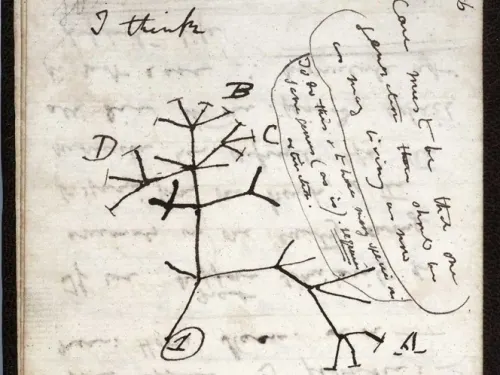 I think
B
C
D
A
1
Case must be that one
generation then should be
as many living as now
To do this & to have many species in
same genus (as is) requires
extinction